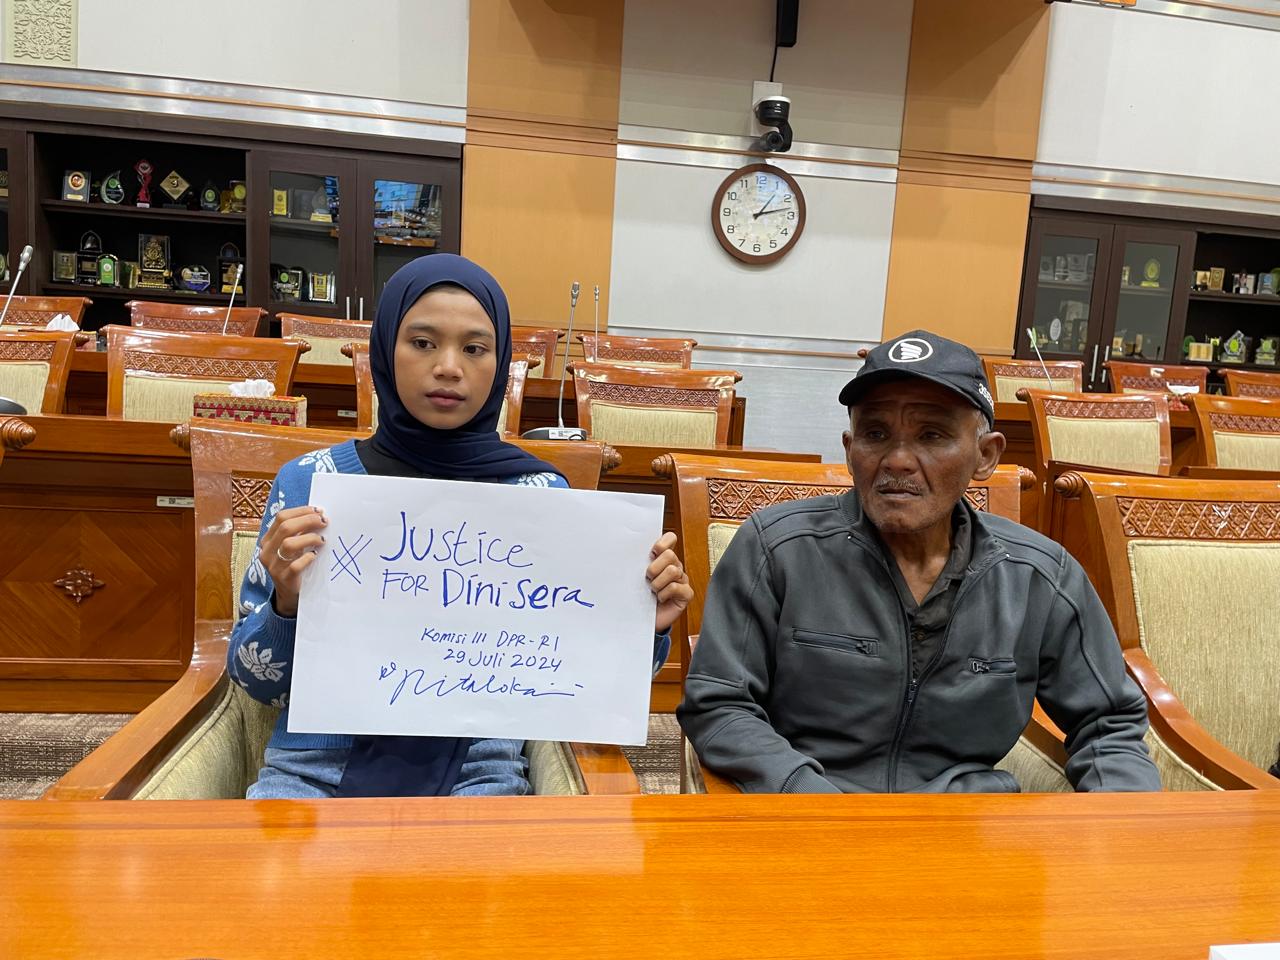 # Justice
For Dini Sera
Komisi III DPR-RI
29 Juli 2024
12
1
2
3
4
5
6
7
8
9
10
11